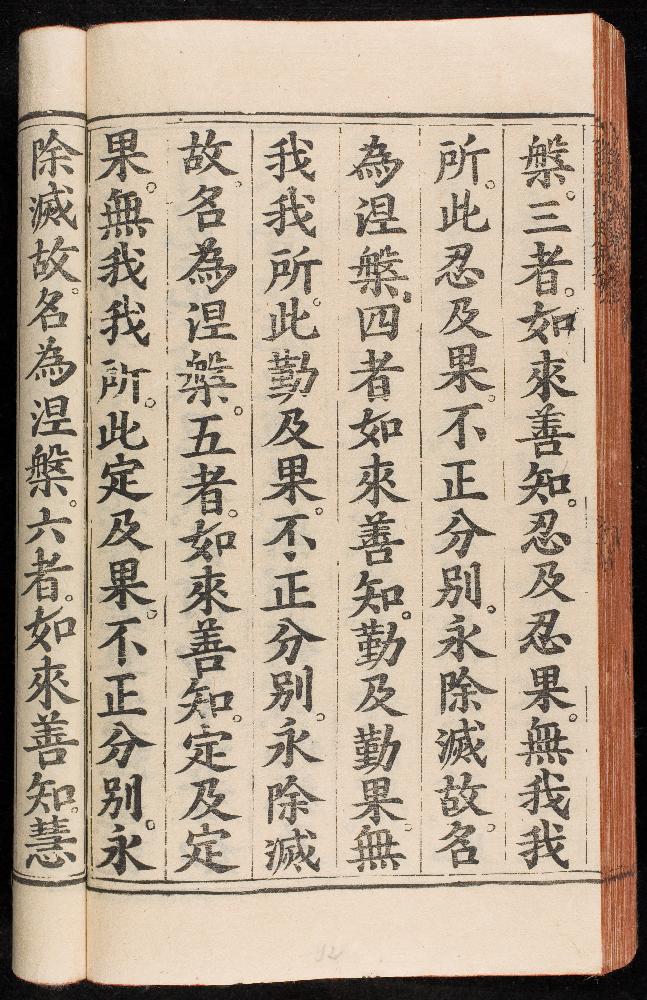 槃。三者。如來善知。忍及忍果。無我我
所。此忍及果。不正分別。永除滅故。名
為涅槃。四者如來善知。勤及勤果。無
我我所。此勤及果。不正分別。永除滅
故。名為涅槃。五者。如來善知。定及定
果。無我我所。此定及果。不正分別。永
除滅故。名為涅槃。六者。如來善知。慧